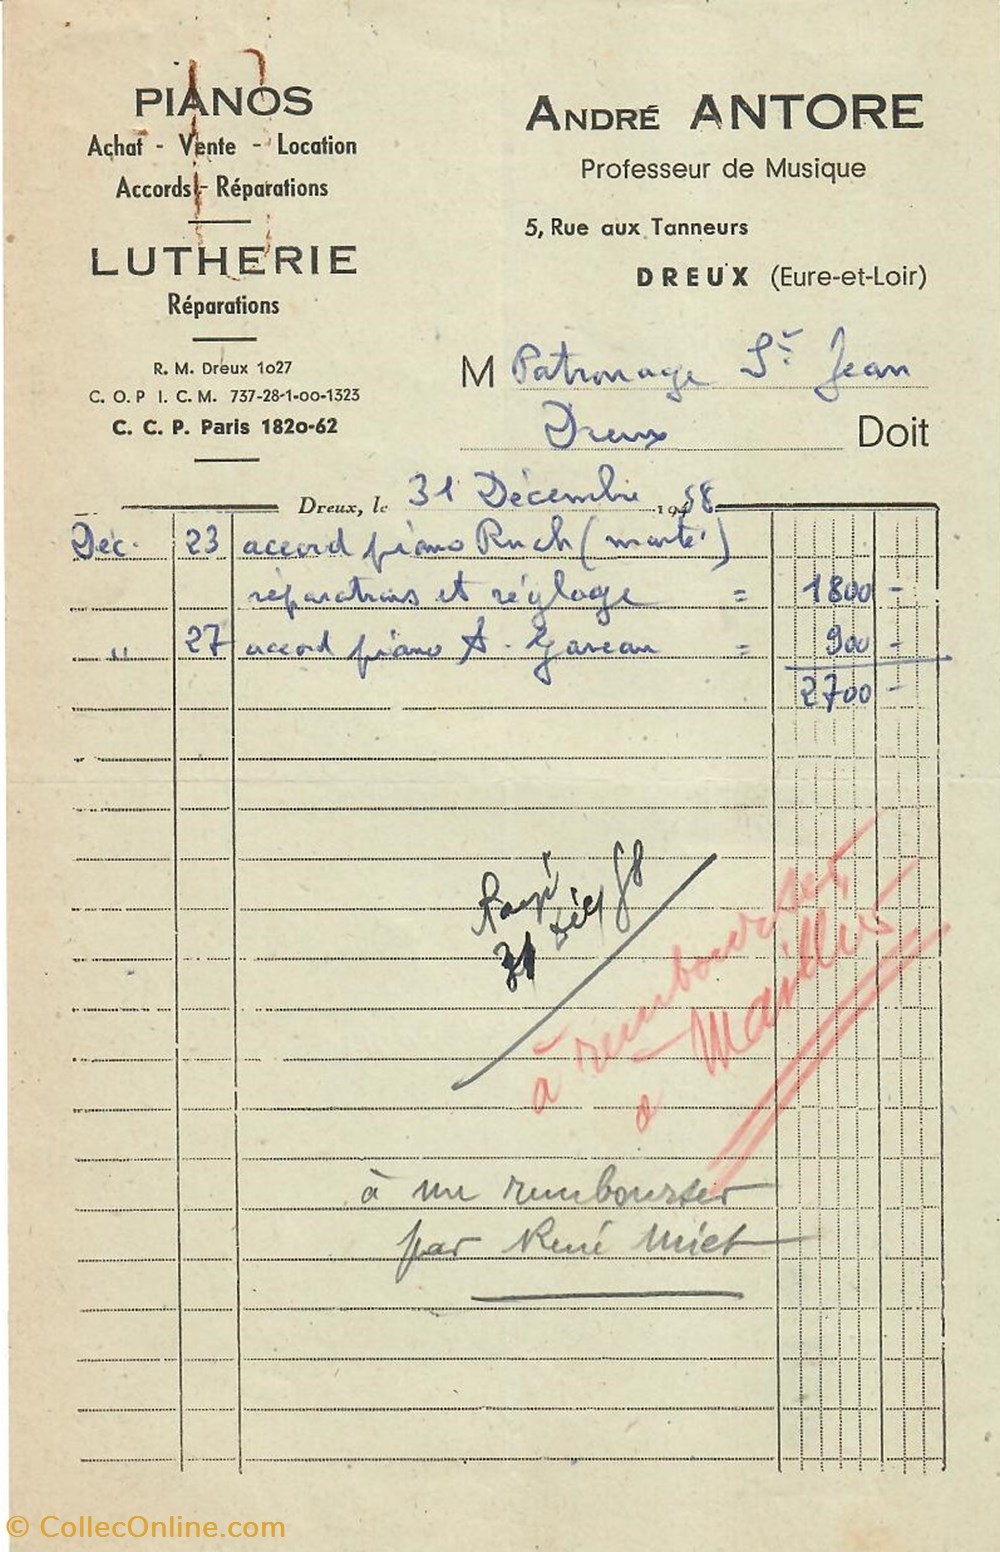 PIANOS
Achat - Vente - Location
Accords - Réparations
LUTHERIE
Réparations
R. M. Dreux 1027
C. O. P I. C. M. 737-28-1-00-1323
C. C. P. Paris 1820-62
ANDRÉ ANTORE
Professeur de Musique
5, Rue aux Tanneurs
DREUX (Eure-et-Loir)
M Patronage St Jean
Dreux Doit
Dreux, le 31 Décembre 1958
Déc. 23 accord piano Ruch (monté)
réparations et réglage = 1800 -
" 27 accord piano A. Gaveau = 900 -
2700 -
31 Déc 58
à rembourser
à Maillis
à me rembourser
par René Miet
© CollecOnline.com